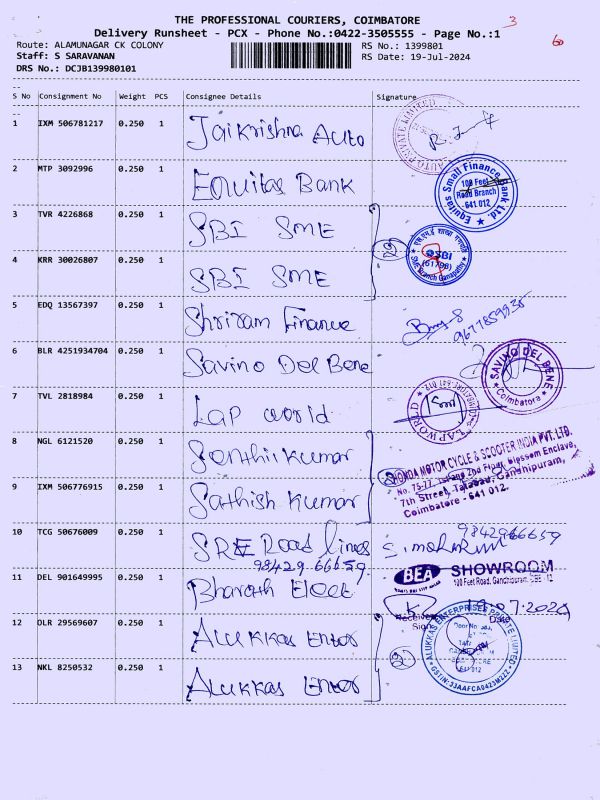 THE PROFESSIONAL COURIERS, COIMBATORE
3
Delivery Runsheet - PCX - Phone No.:0422-3505555 - Page No.:1
60
Route: ALAMUNAGAR CK COLONY
RS No.: 1399801
Staff: S SARAVANAN
RS Date: 19-Jul-2024
DRS No.: DCJB139980101
S No Consignment No Weight PCS Consignee Details Signature
1 IXM 506781217 0.250 1 Jaikrishna Auto
2 MTP 3092996 0.250 1 Equitas Bank
Equitas Small Finance Bank Ltd.
100 Feet
Road Branch
-641 012
3 TVR 4226868 0.250 1 SBI SME
2
SBI
(61798)
SME Branch Ganapathy
4 KRR 30026807 0.250 1 SBI SME
5 EDQ 13567397 0.250 1 Shriram Finance
6 BLR 4251934704 0.250 1 Savino Del Bene
SAVINO DEL BENE
Coimbatore
7 TVL 2818984 0.250 1 Lap world
LAP WORLD
8 NGL 6121520 0.250 1 Senthil Kumar
HONDA MOTOR CYCLE & SCOOTER INDIA PVT. LTD.
No. 75-77, 1st and 2nd Floor, Blossom Enclave,
7th Street, Tatabad, Ganshipuram,
Coimbatore - 641 012.
9 IXM 506776915 0.250 1 Sathish Kumar
10 TCG 50676009 0.250 1 SRE Road lines
98429 66659
9842966659
11 DEL 901649995 0.250 1 Bharath Elect
BEA SHOWROOM
100 Feet Road, Gandhipuram, CBE - 12
19.07.2024
12 DLR 29569607 0.250 1 Alukkas Enter
2
ALUKKAS ENTERPRISES PRIVATE LIMITED
641 012
13 NKL 8250532 0.250 1 Alukkas Enter